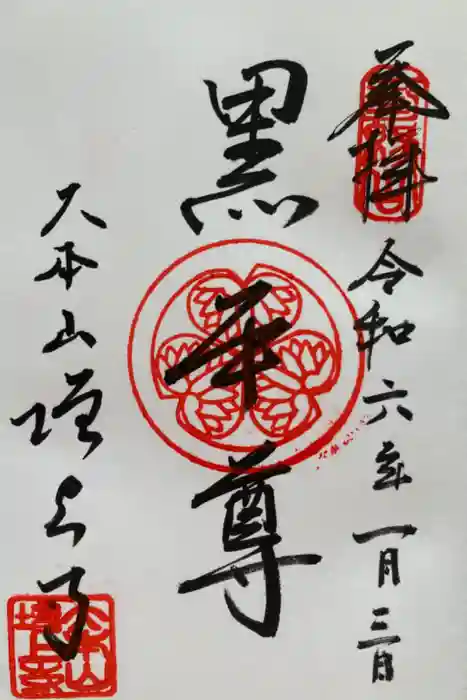 奉拝
令和六年一月三日
黒本尊
大本山増上寺